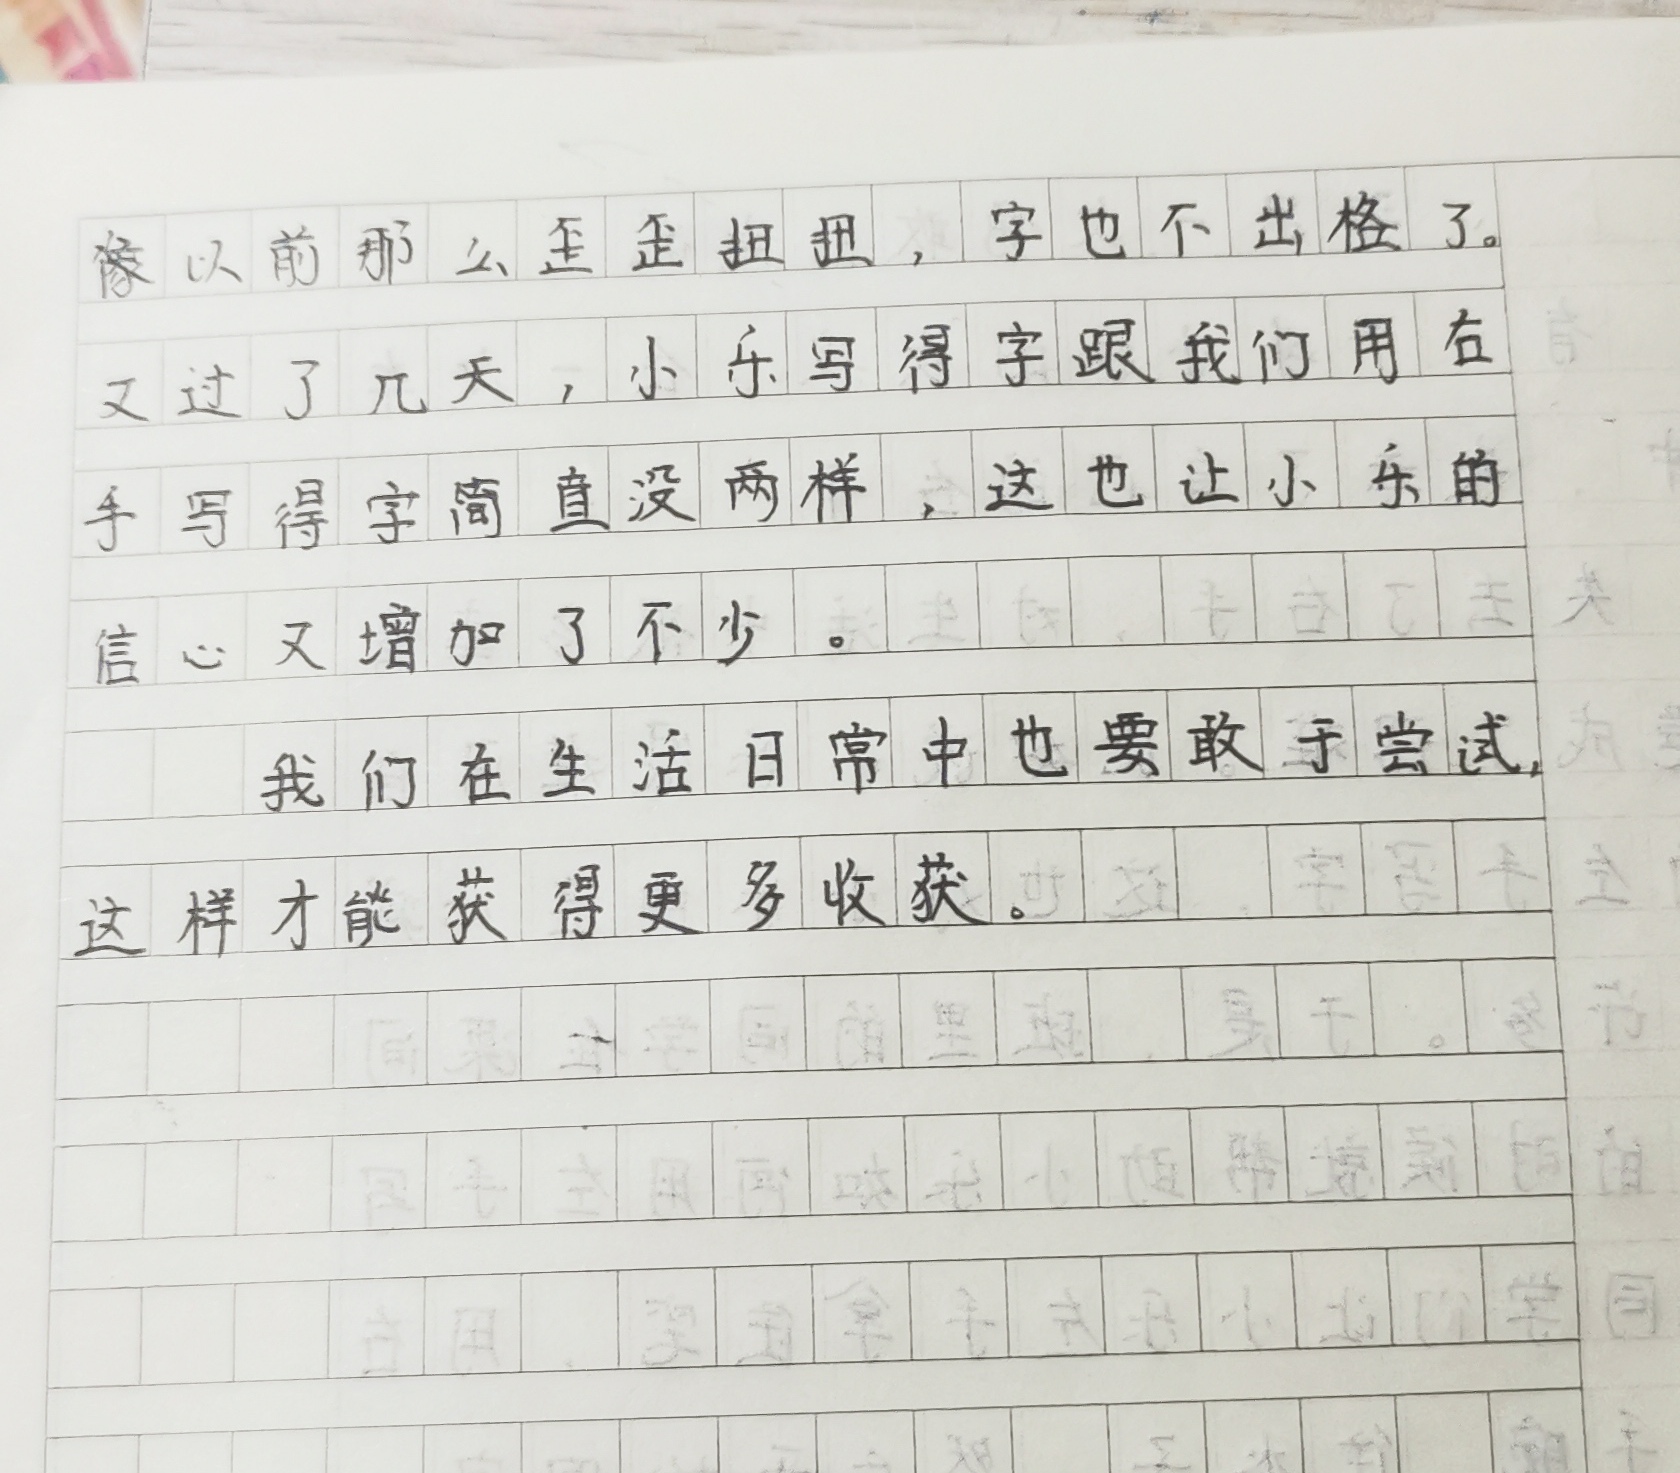 像以前那么歪歪扭扭，字也不出格了。
又过了几天，小乐写得字跟我们用右
手写得字简直没两样，这也让小乐的
信心又增加了不少。
我们在生活日常中也要敢于尝试，
这样才能获得更多收获。